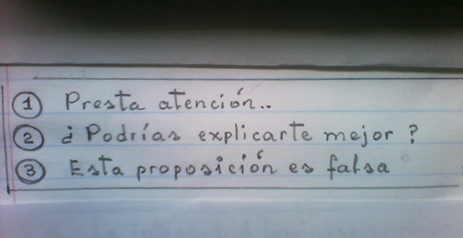 ① Presta atención..
② ¿Podrías explicarte mejor?
③ Esta proposición es falsa